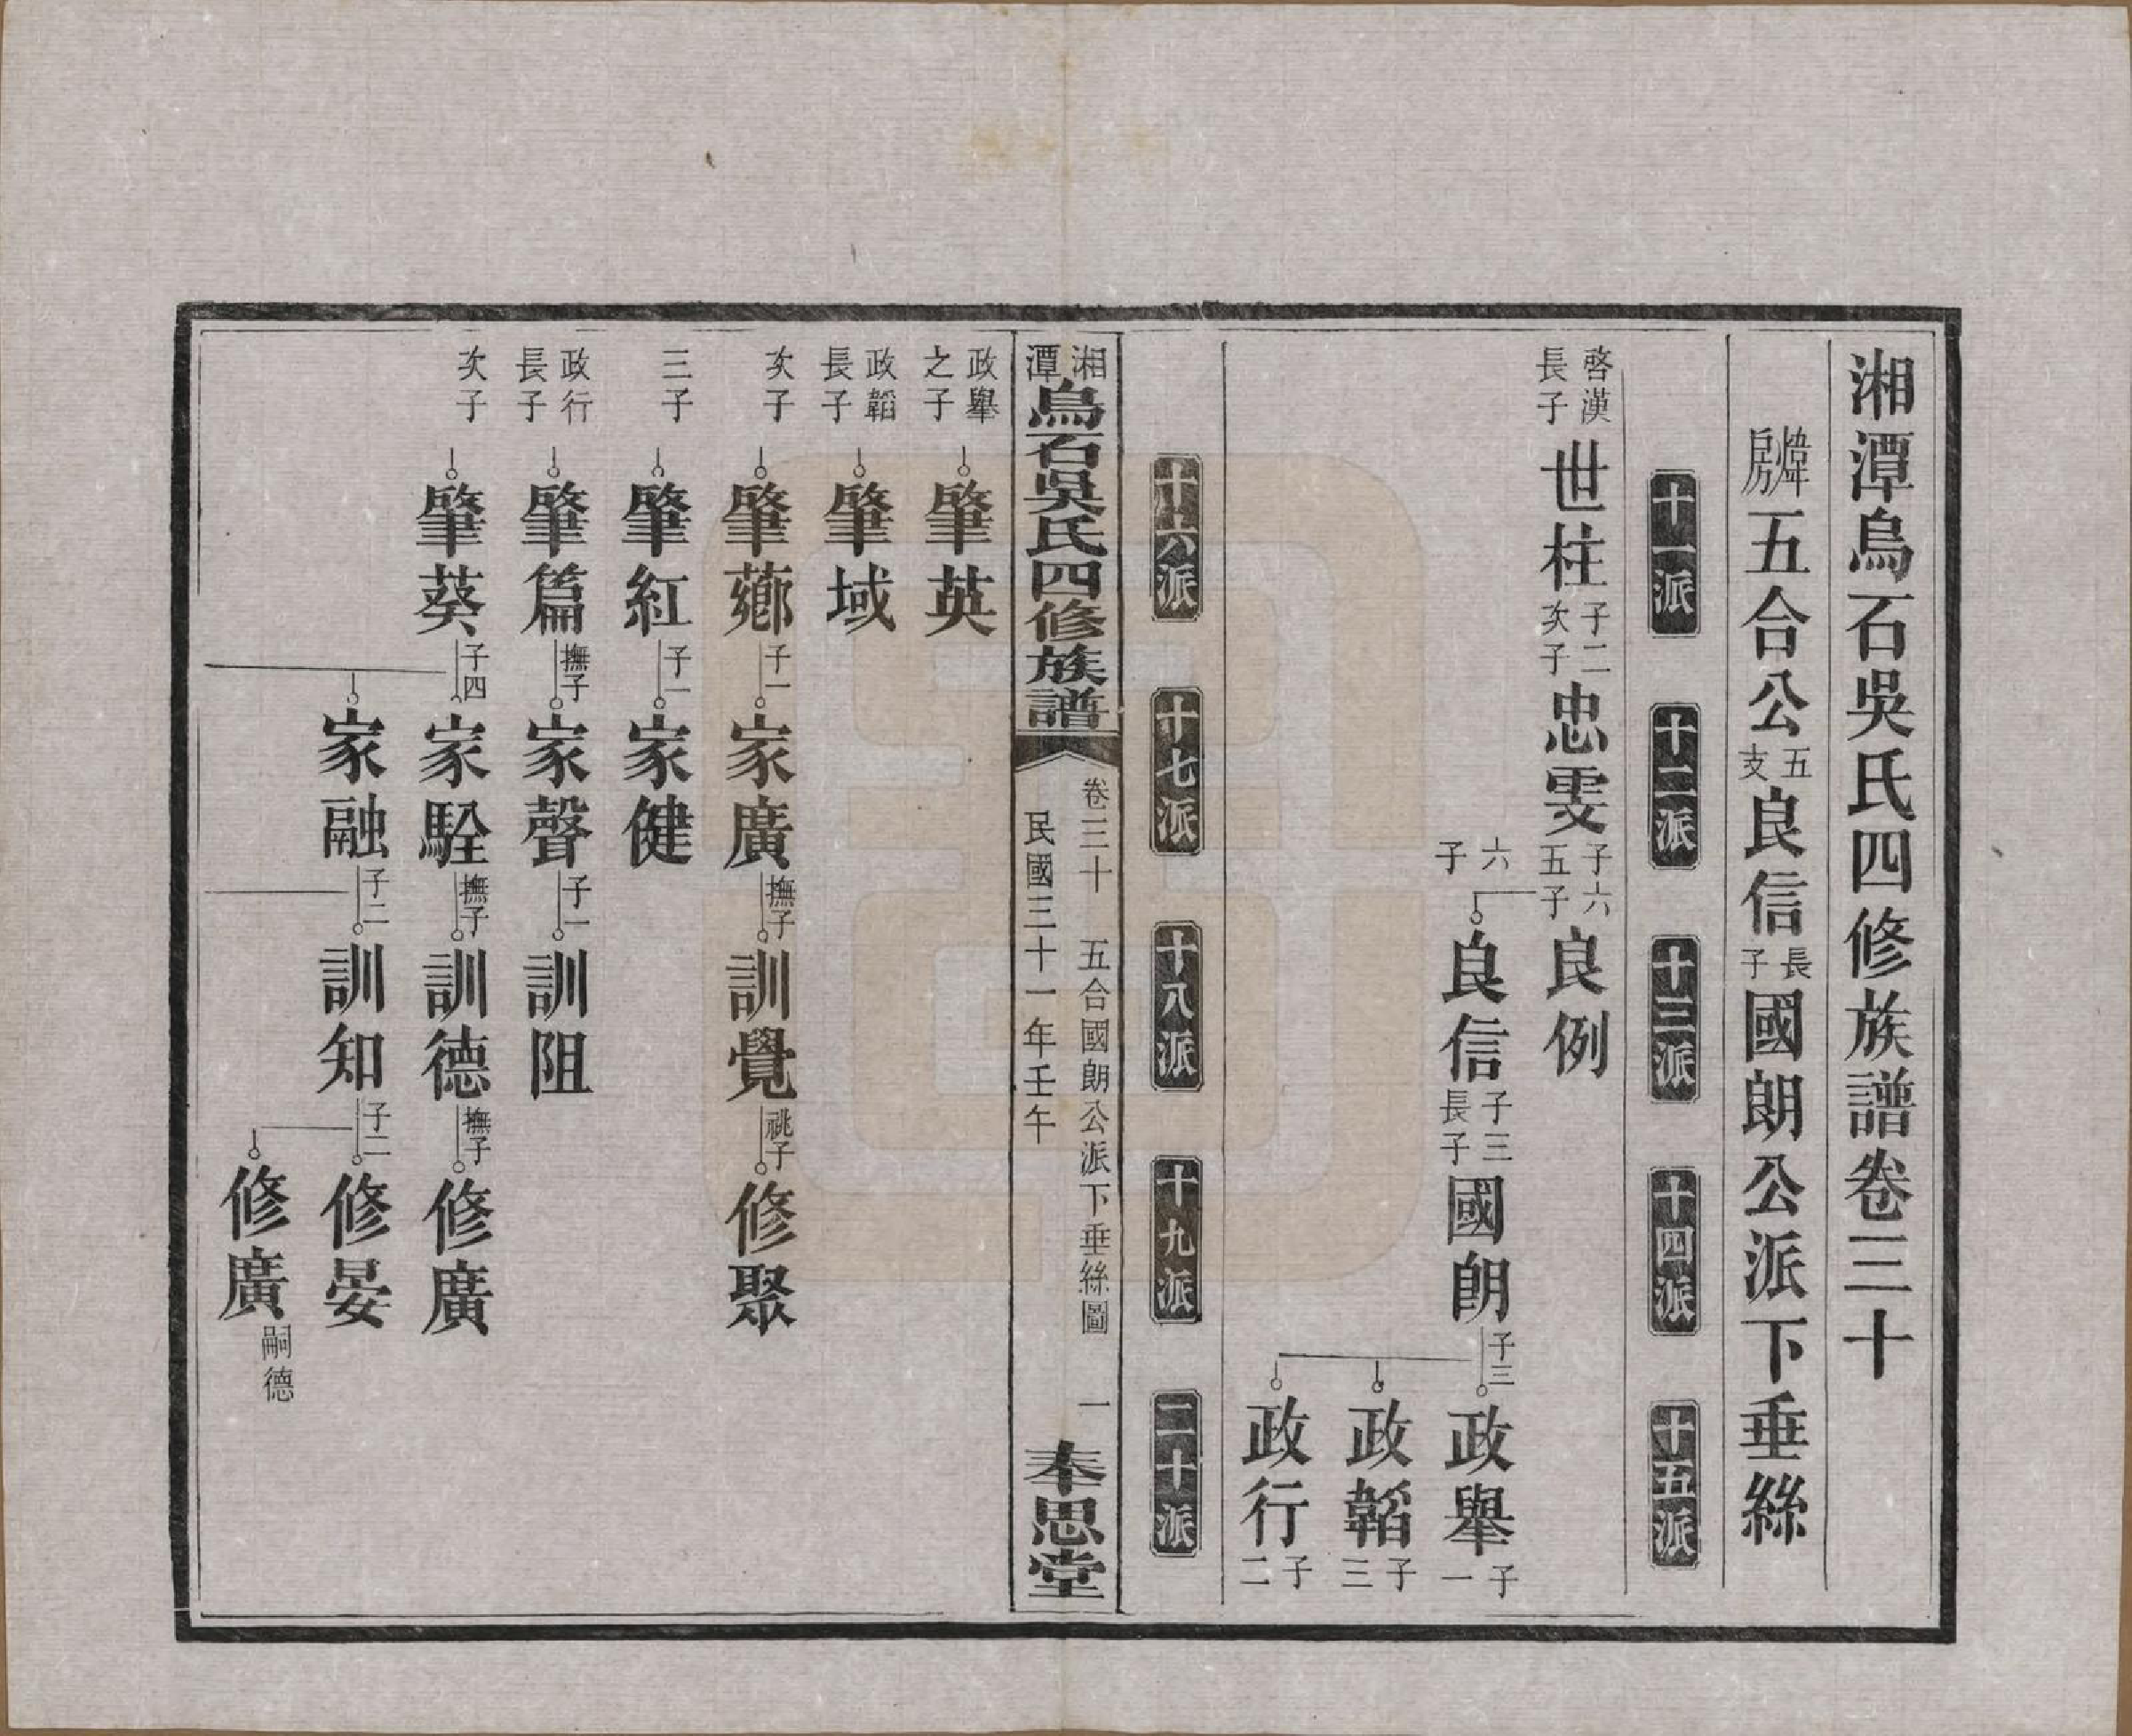 湘潭烏石吳氏四修族譜卷三十
煒房五合公五支良信長子國朗公派下垂絲
十一派 十二派 十三派 十四派 十五派
啓漢長子世柱子二次子忠雯子六五子良例
六子良信子三長子國朗子三政舉子一
政韜子三
政行子二
十六派 十七派 十八派 十九派 二十派
湘潭烏石吳氏四修族譜 卷三十 五合國朗公派下垂絲圖 一
民國三十一年壬午
奉思堂
政舉之子肇英
政韜長子肇域
次子肇薌子一家廣撫子訓覺祧子修聚
三子肇紅子一家健
政行長子肇篇撫子家聲子一訓阻
次子肇葵子四家駩撫子訓德撫子修廣
家融子二訓知子二修晏
修廣嗣德